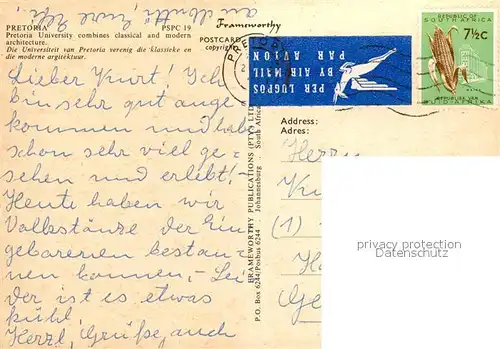 an Mutti, Eure Effi
PRETORIA PSPC 19
Pretoria University combines classical and modern
architecture.
Die Universiteit van Pretoria verenig die klassieke en
die moderne argitektuur.
Lieber Kurt! Ich
bin sehr gut ange-
kommen und habe
schon sehr viel ge-
sehen und erlebt!
Heute haben wir
Volkstänze der Ein
geborenen bestau-
nen können, – Lei
der ist es etwas
kühl.
Herzl. Grüße, auch
Frameworthy
POSTCARD
copyright
FRAMEWORTHY PUBLICATIONS (PTY) LTD
Johannesburg South Africa
P.O. Box 6244/Posbus 6244
PRETORI
PER LUGPOS
BY AIR MAIL
PAR AVION
REPUBLIC OF
SOUTH AFRICA
7½c
REPUBLIEK VAN
SUID-AFRIKA
Address:
Adres:
Herrn
Ku
(1)
H
Ge
privacy protection
Datenschutz